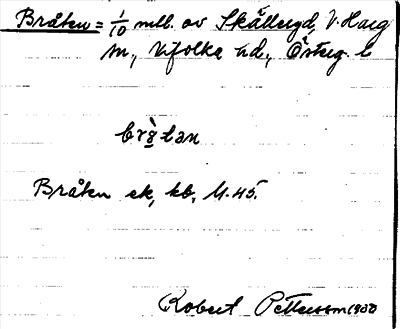 Bråten = 1/10 mtl. av Skålltorp, V. Harg
sn., Vifolka hd., Österg. l.
brå̀tan
Bråten ek, kb, M.45.
Robert Pettersson 1930